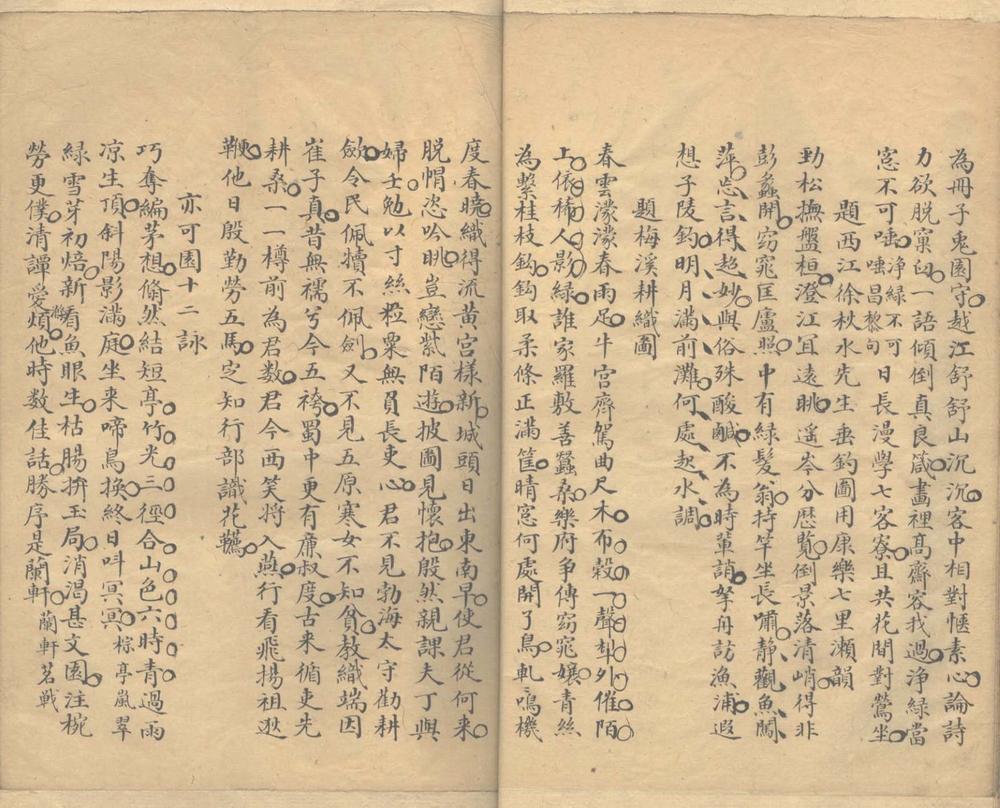 為冊子兎園守越江舒舒山沉沉客中相對愜素心論詩
力欲脫窠臼一語傾倒真良箴畫裡高齋容我過淨綠當
窓不可唾淨綠不可唾昌黎句日長漫學七客寮且共花間對鶯坐
題西江徐秋水先生垂釣圖用康樂七里瀨韻
勁松撫盤桓澄江冝遠眺遙岑分歷覧倒景落清峭得非
彭蠡開窈窕匡廬照中有綠髮翁持竿坐長嘯静觀魚闖
萍忘言得超妙與俗殊酸鹹不為時軰誚拏舟訪漁浦遐
想子陵釣明月滿前灘何處起水調
題梅溪耕織圖
春雲濛濛春雨足牛宫齊駕曲尺木布穀一聲犁外催陌
上依稀人影綠誰家羅敷善蠶桑樂府争傳窈窕孃青絲
為繫桂枝鈎鈎取柔條正滿筐晴窓何處開了鳥軋鳴機
度春曉織得流黄宫樣新城頭日出東南早使君從何来
脫帽恣吟眺豈戀紫陌遊披圖見懷抱殷然親課夫丁與
婦壬勉以寸絲粒粟無負長吏心君不見勃海太守勸耕
歛令民佩犢不佩劍又不見五原寒女不知貧教織端因
崔子真昔無襦兮今五袴蜀中更有廉叔度古来循吏先
耕桑一一樽前為君数君今西笑将入燕行看飛揚祖逖
鞭他日殷勤勞五馬定知行部識花韉
亦可園十二詠
巧奪編茅想翛然結短亭竹光三徑合山色六時青過雨
凉生頂斜陽影滿庭坐来啼鳥換終日呌冥冥棕亭嵐翠
緑雪芽初焙新看魚眼生枯腸拚玉局消渴甚文園注椀
勞更僕清譚愛煩他時数佳話勝序是蘭軒蘭軒茗戰